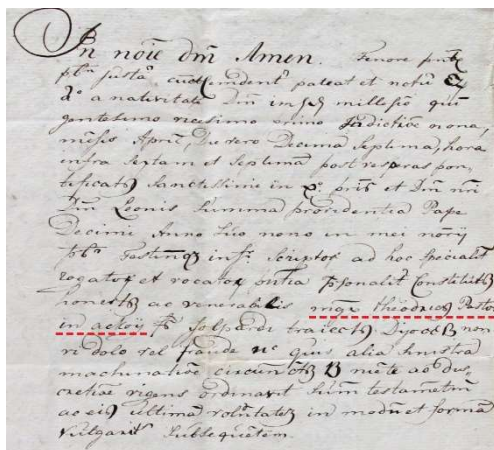 In noīe dm̄ Amen. Tenore
pateat et notū
a nativitate Dm̄ millesīo quī
gentesimo vicesimo primo Indictiōe nona,
mēsis April, die vero Decima Septima, hora
infra Sextam et Septimā post vesperas pon,
tificatꝫ Sanctissimi in xº pris et Dm̄ nr̄i
Dm̄ Leonis Summa providentia Pape
Decimi Anno Suo nono in mei notȳ
Testiumqꝫ inf: Scriptoꝝ ad hoc specialit
rogatoꝝ et vocatoꝝ pn̄tia ꝑsonalit Constitutꝫ
honestꝫ ac venerabilis mgr̄ theodricꝫ Pastor
in acloÿ traiectꝫ Dyocꝫ non
vi dolo vel fraude alia sinistra
machinatiōe circūvētꝫ mēte ac
cretiōe vigens ordinavit Suūm testamentūm
ac eiꝫ ultimā volūtatꝫ in modūm et formā
vulgarit Subsequētem.